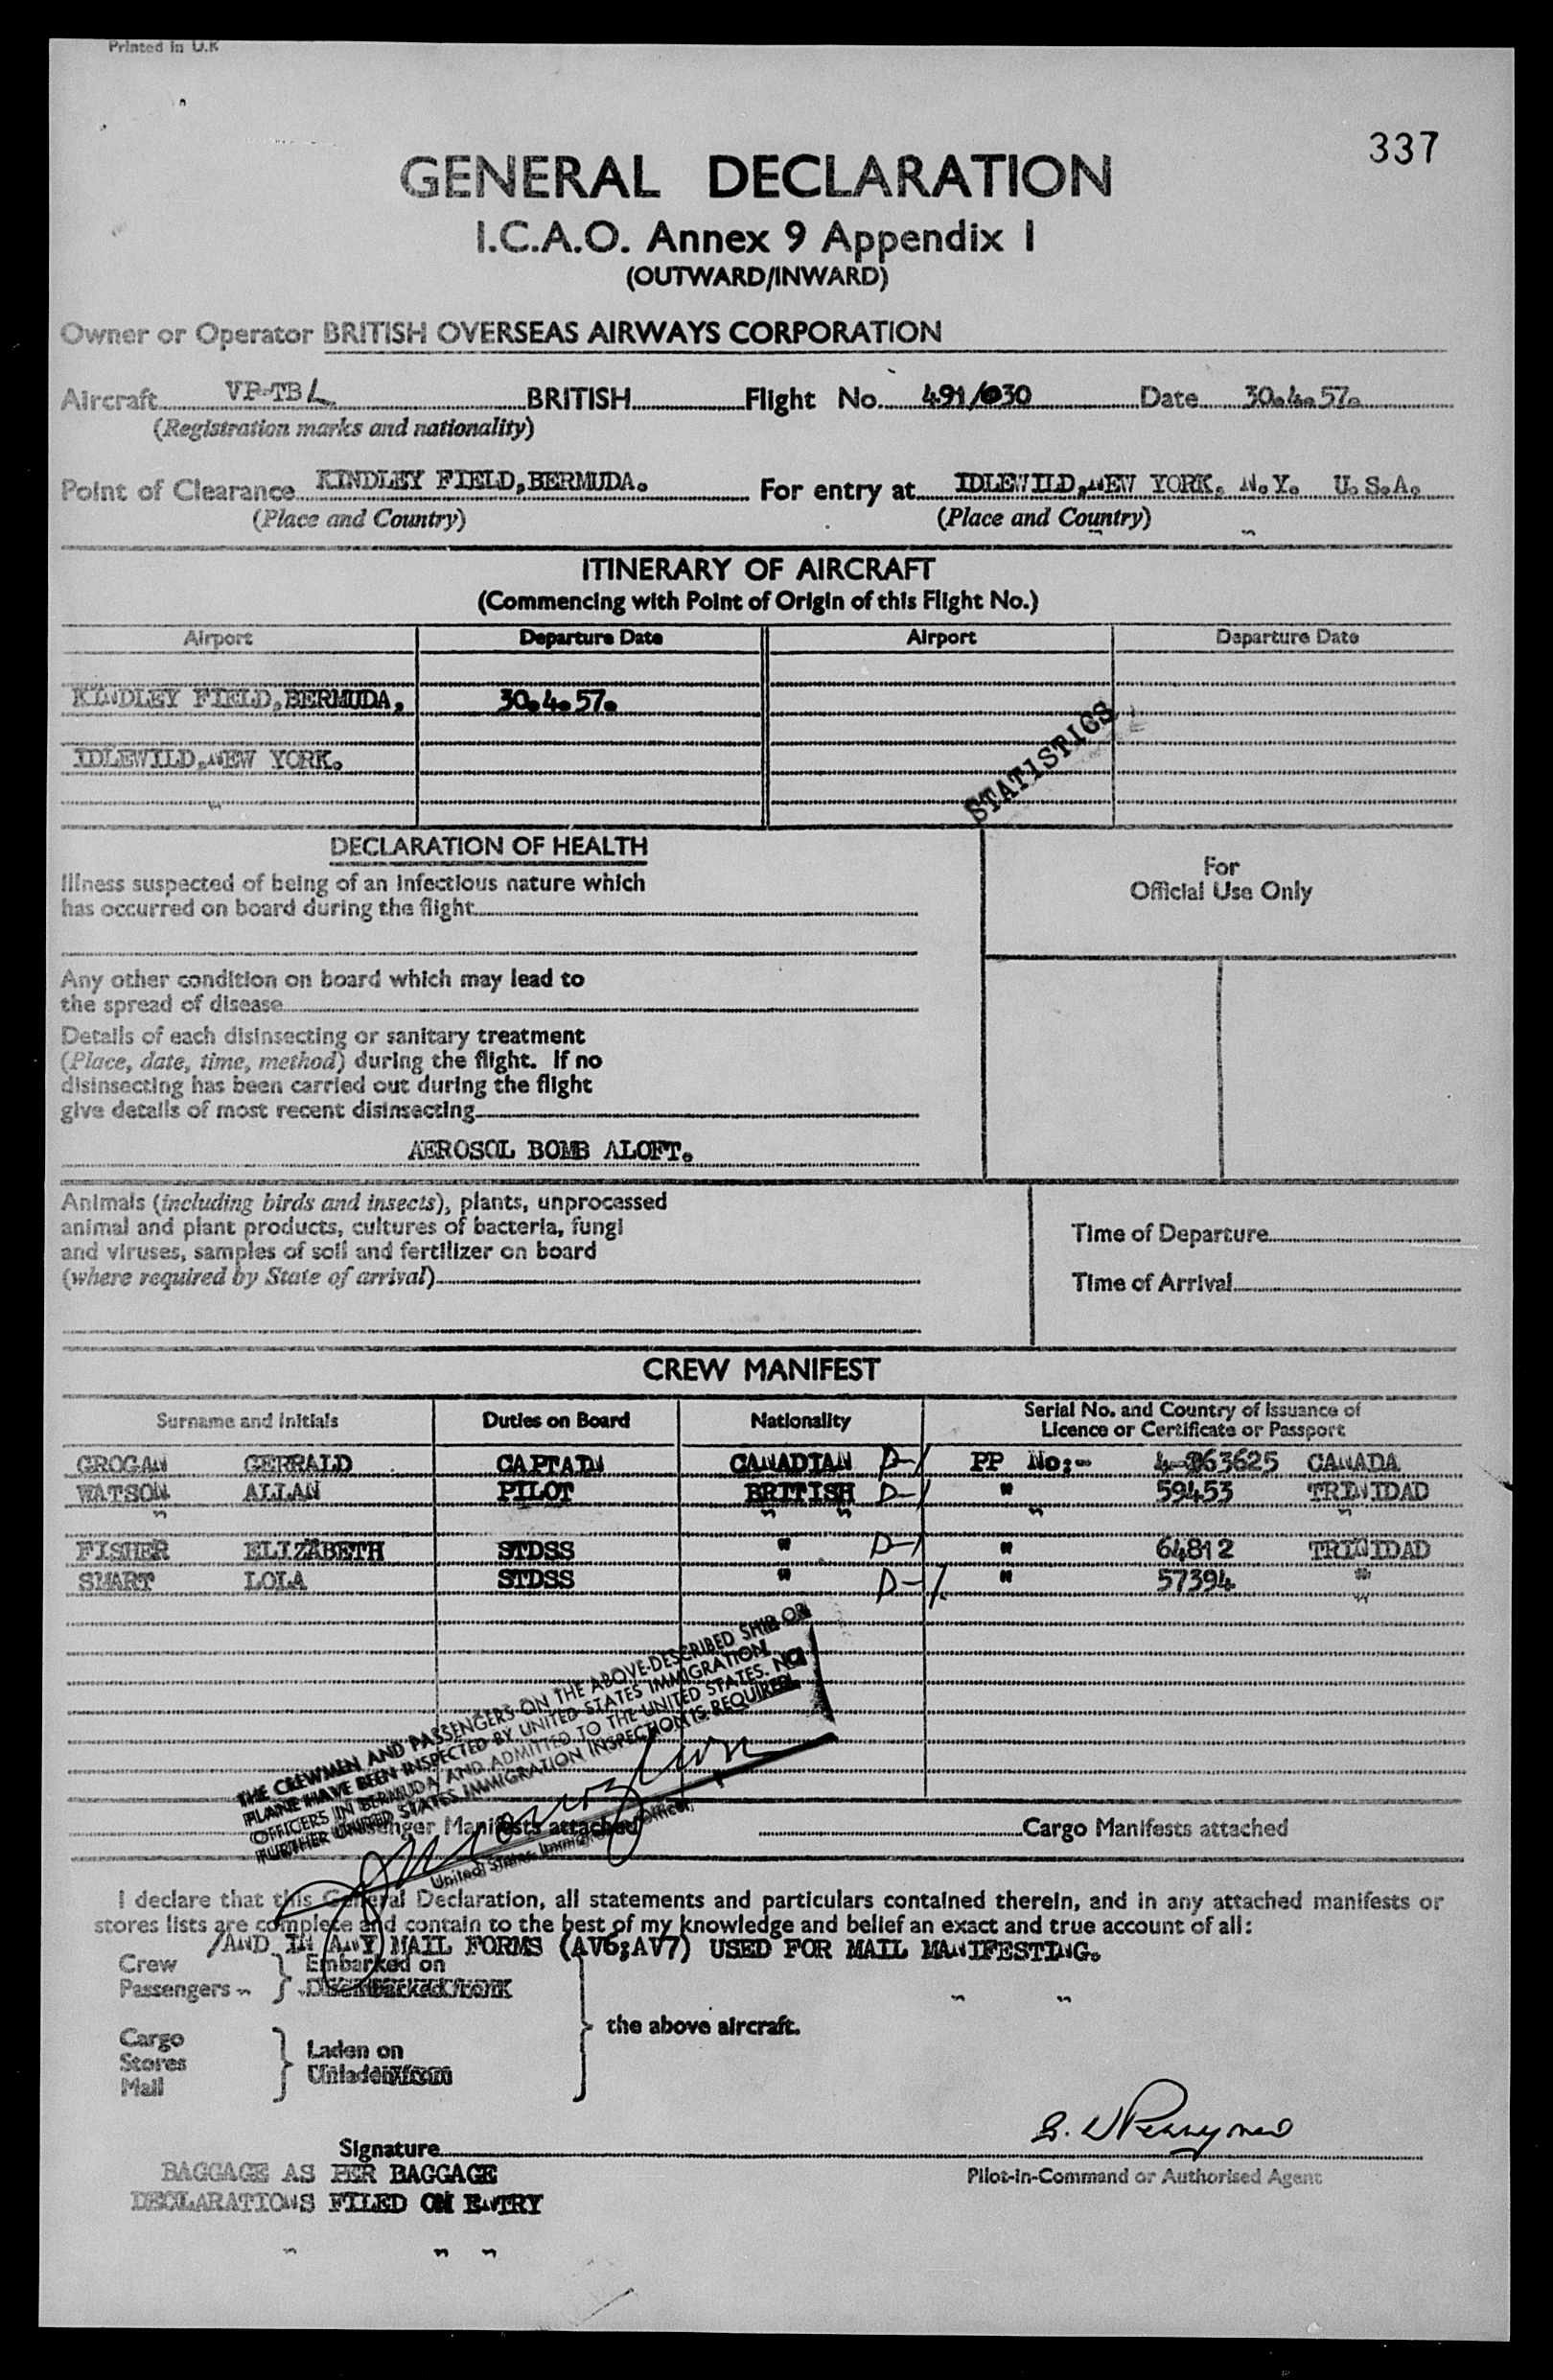 Printed in U.K
337
GENERAL DECLARATION
I.C.A.O. Annex 9 Appendix 1
(OUTWARD/INWARD)
Owner or Operator BRITISH OVERSEAS AIRWAYS CORPORATION
Aircraft VP-TBL BRITISH Flight No. 491/030 Date 30.4.57.
(Registration marks and nationality)
Point of Clearance KINDLEY FIELD,BERMUDA. For entry at IDLEWILD,NEW YORK. N.Y. U.S.A.
(Place and Country) (Place and Country)
ITINERARY OF AIRCRAFT
(Commencing with Point of Origin of this Flight No.)
Airport Departure Date Airport Departure Date
KINDLEY FIELD,BERMUDA, 30.4.57.
IDLEWILD,NEW YORK.
STATISTICS
DECLARATION OF HEALTH
Illness suspected of being of an infectious nature which
has occurred on board during the flight
For
Official Use Only
Any other condition on board which may lead to
the spread of disease
Details of each disinsecting or sanitary treatment
(Place, date, time, method) during the flight. If no
disinsecting has been carried out during the flight
give details of most recent disinsecting
AEROSOL BOMB ALOFT.
Animals (including birds and insects), plants, unprocessed
animal and plant products, cultures of bacteria, fungi
and viruses, samples of soil and fertilizer on board
(where required by State of arrival)
Time of Departure
Time of Arrival
CREW MANIFEST
Surname and Initials Duties on Board Nationality Serial No. and Country of Issuance of
Licence or Certificate or Passport
GROGAN GERRALD CAPTAIN CANADIAN D-1 PP No:- 4-063625 CANADA
WATSON ALLAN PILOT BRITISH D-1 " 59453 TRINIDAD
FISHER ELIZABETH STDSS " D-1 " 64812 TRINIDAD
SMART LOLA STDSS " D-1. " 57394 "
THE CREWMEN AND PASSENGERS ON THE ABOVE-DESCRIBED SHIP OR
PLANE HAVE BEEN INSPECTED BY UNITED STATES IMMIGRATION
OFFICERS IN BERMUDA AND ADMITTED TO THE UNITED STATES. NO
FURTHER UNITED STATES IMMIGRATION INSPECTION IS REQUIRED.
United States Immigration Officer
Passenger Manifests attached Cargo Manifests attached
I declare that this General Declaration, all statements and particulars contained therein, and in any attached manifests or
stores lists are complete and contain to the best of my knowledge and belief an exact and true account of all:
/AND IN (ANY) MAIL FORMS (AV6;AV7) USED FOR MAIL MANIFESTING.
Crew
Passengers
Embarked on
Disembarked from
the above aircraft.
Cargo
Stores
Mail
Laden on
Unladen from
Signature
Pilot-in-Command or Authorised Agent
BAGGAGE AS PER BAGGAGE
DECLARATIONS FILED ON ENTRY